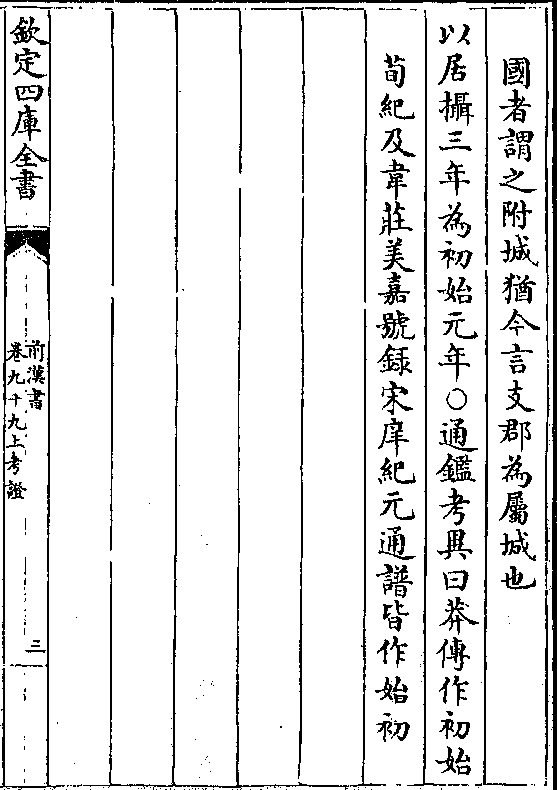 國者謂之附城猶今言支郡為屬城也
以居攝三年為初始元年○通鑑考異曰莽傳作初始
荀紀及韋莊美嘉號録宋庠紀元通譜皆作始初
欽定四庫全書
前漢書
卷九十九上考證
三